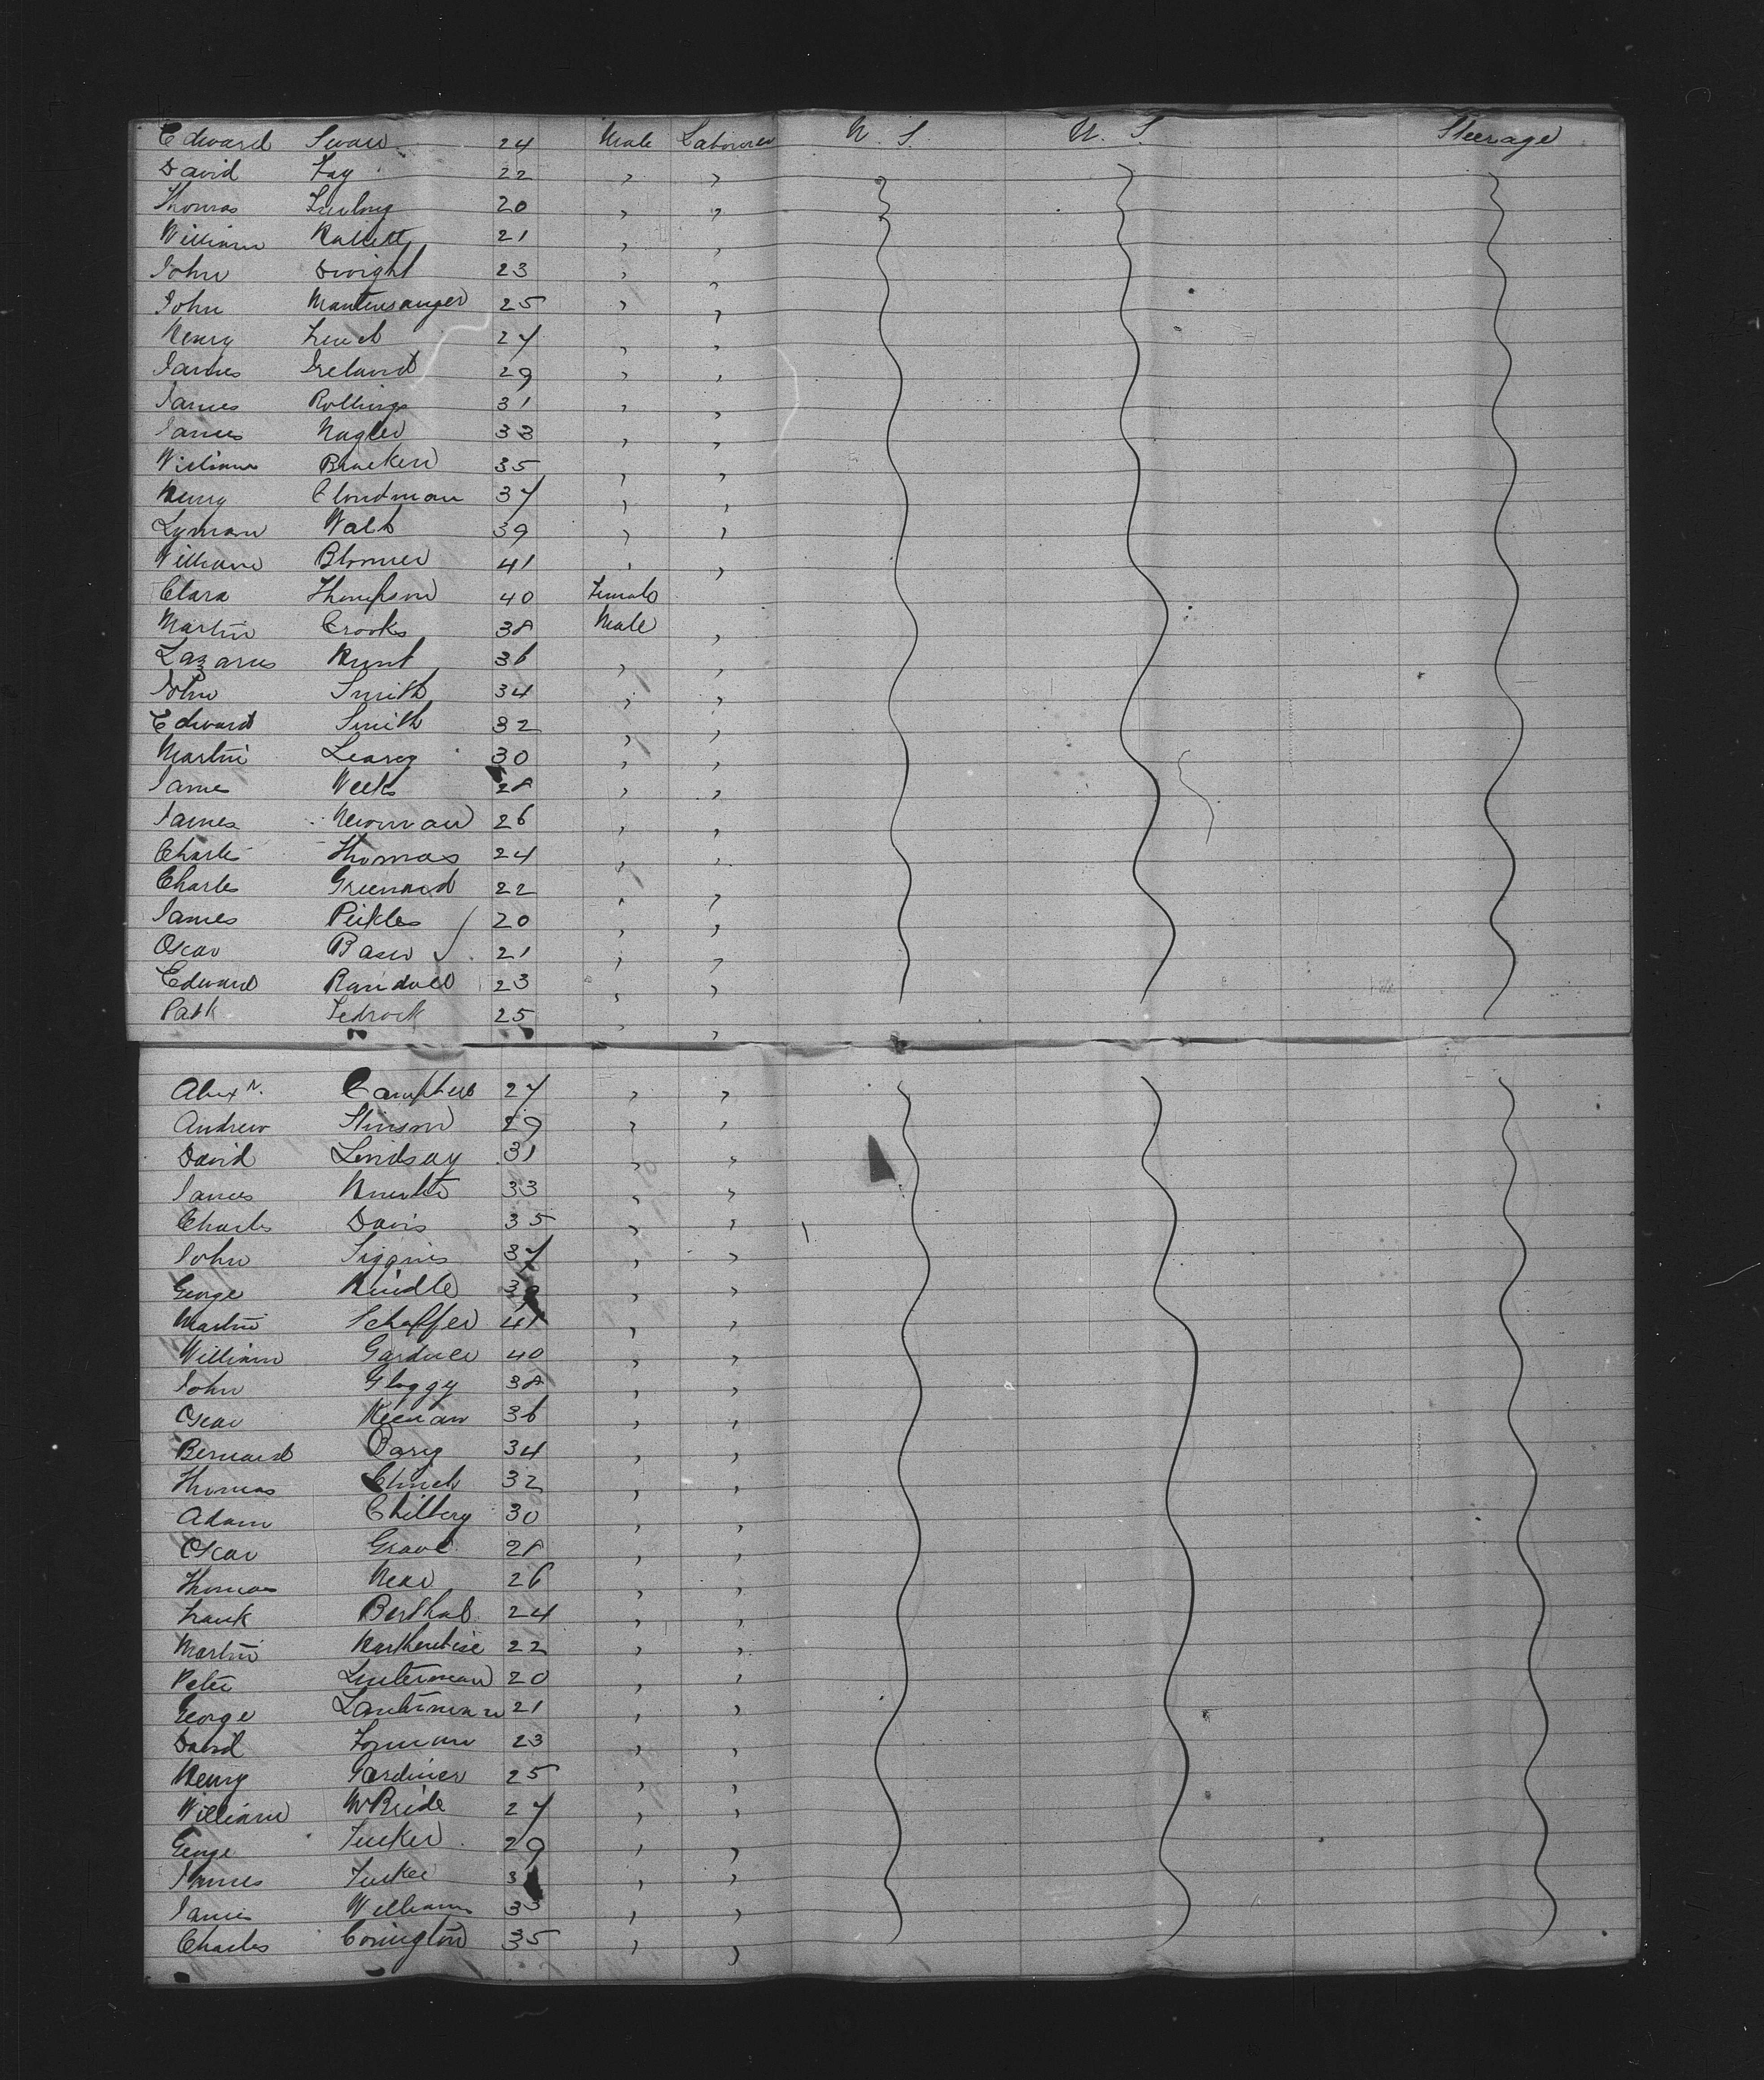 Edward Swan 24 Male Laborer U. S. U. S. Steerage
David Fay 22 " "
Thomas 20 " "
William 21 " "
John Dwight 23 " "
John 25 " "
Henry 27 " "
James Ireland 29 " "
James Rollings 31 " "
James Nagler 33 " "
William Bracken 35 " "
Henry Cloudman 37 " "
Lyman Walb 39 " "
William 41 " "
Clara Thompson 40 Female
Martin Crooks 38 Male "
Lazarus Hunt 36 " "
John Smith 34 " "
Edward Smith 32 " "
Martin Leary 30 " "
James Weeks 28 " "
James Newman 26 " "
Charles Thomas 24 " "
Charles 22 " "
James Pickles 20 " "
Oscar 21 " "
Edward Randall 23 " "
Patk 25 " "
Alexr. Campbell 27 " "
Andrew Stinson 29 " "
David Lindsay 31 " "
James 33 " "
Charles Davis 35 " "
John 37 " "
George Kindle 39 " "
Martin Schaffer 41 " "
William Gardner 40 " "
John Gloggy 38 " "
Oscar Keenan 36 " "
Bernard 34 " "
Thomas Clinch 32 " "
Adam Chilberg 30 " "
Oscar 28 " "
Thomas 26 " "
Frank Berthal 24 " "
Martin 22 " "
Peter 20 " "
George Lauterman 21 " "
David Forman 23 " "
Henry Gardiner 25 " "
William McBride 27 " "
George Tucker 29 " "
James Tucker 31 " "
James Williams 33 " "
Charles Conington 35 " "